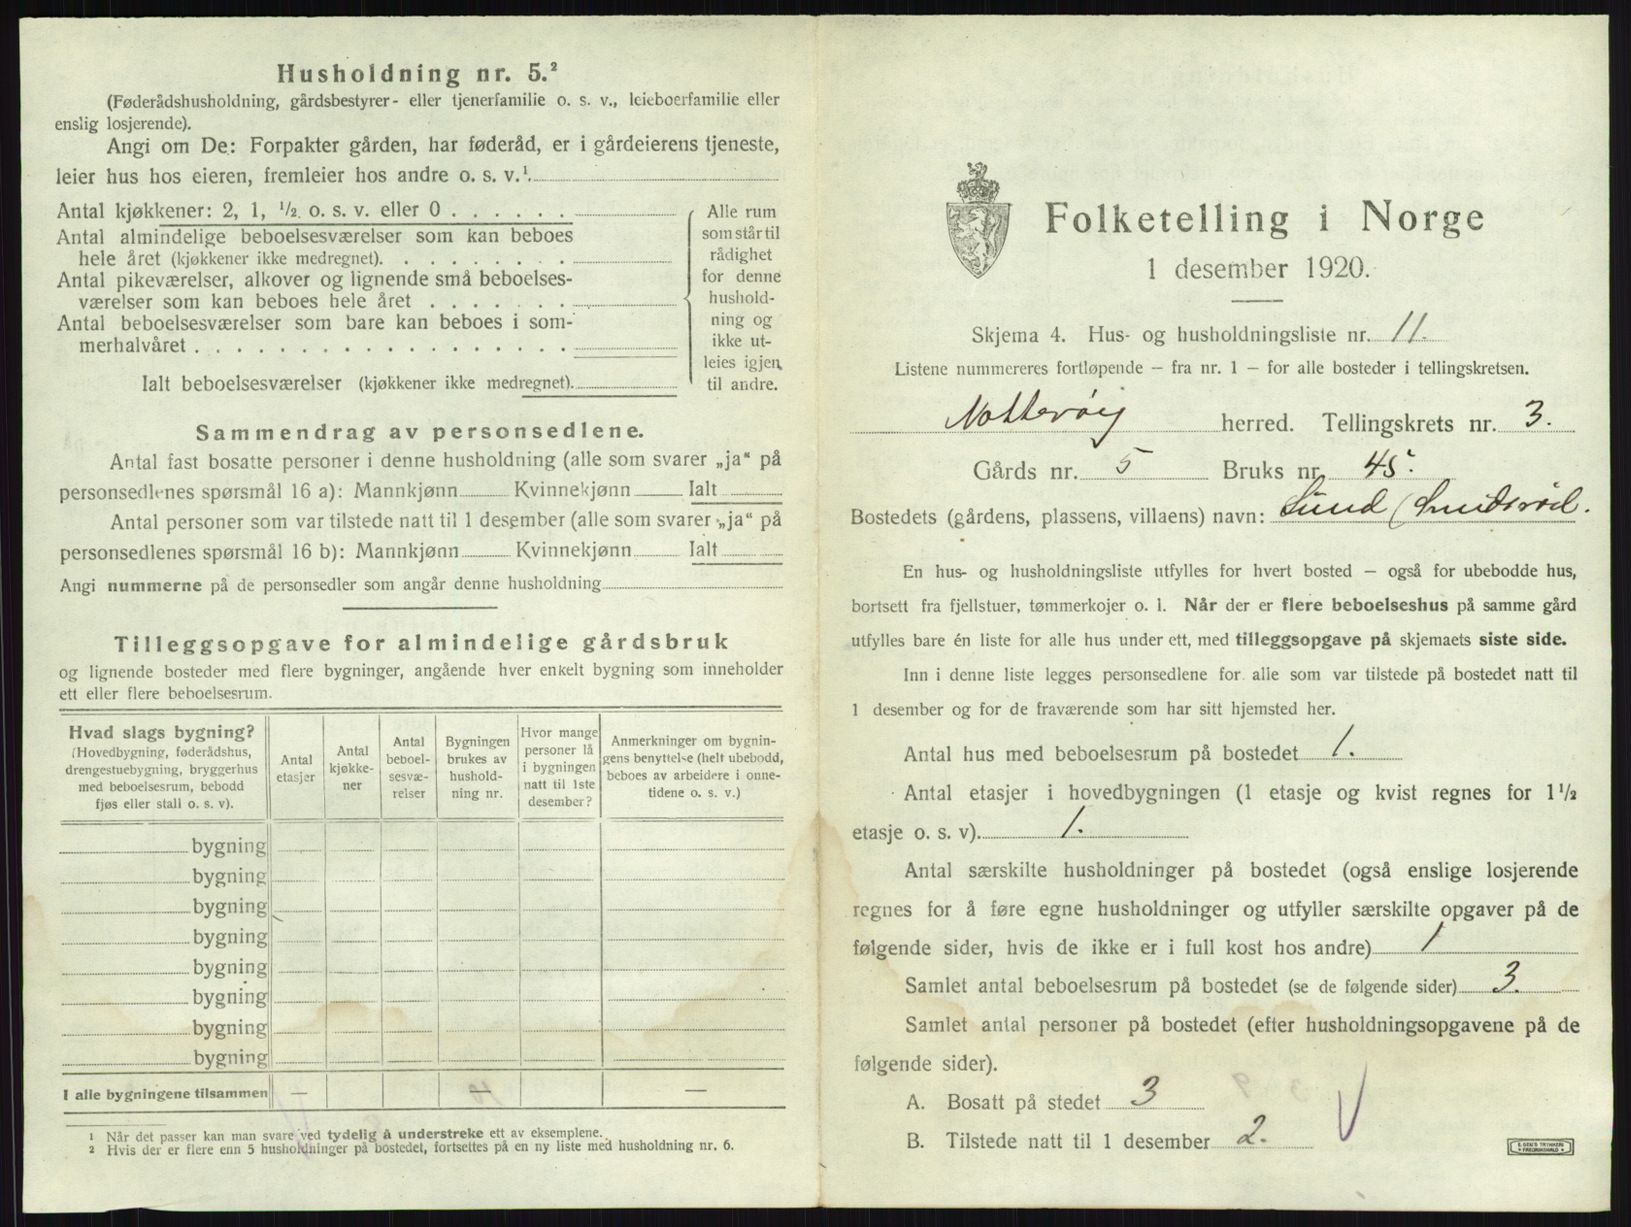 Husholdning nr. 5.²
(Føderådshusholdning, gårdsbestyrer- eller tjenerfamilie o. s. v., leieboerfamilie eller
enslig losjerende).
Angi om De: Forpakter gården, har føderåd, er i gårdeierens tjeneste,
leier hus hos eieren, fremleier hos andre o. s. v.¹
Antal kjøkkener: 2, 1, ½ o. s. v. eller 0 . . . . . .
Antal almindelige beboelsesværelser som kan beboes
hele året (kjøkkener ikke medregnet). . . . . . . . .
Antal pikeværelser, alkover og lignende små beboelses-
værelser som kan beboes hele året . . . . . . .
Antal beboelsesværelser som bare kan beboes i som-
merhalvåret . . . . . . . . . . . . . . . . . .
Ialt beboelsesværelser (kjøkkener ikke medregnet).
Alle rum
som står til
rådighet
for denne
hushold-
ning og
ikke ut-
leies igjen
til andre.
Sammendrag av personsedlene.
Antal fast bosatte personer i denne husholdning (alle som svarer „ja“ på
personsedlenes spørsmål 16 a): Mannkjønn Kvinnekjønn Ialt
Antal personer som var tilstede natt til 1 desember (alle som svarer „ja“ på
personsedlenes spørsmål 16 b): Mannkjønn Kvinnekjønn Ialt
Angi nummerne på de personsedler som angår denne husholdning
Tilleggsopgave for almindelige gårdsbruk
og lignende bosteder med flere bygninger, angående hver enkelt bygning som inneholder
ett eller flere beboelsesrum.
Hvad slags bygning?
(Hovedbygning, føderådshus,
drengestuebygning, bryggerhus
med beboelsesrum, bebodd
fjøs eller stall o. s. v).
Antal
etasjer
Antal
kjøkke-
ner
Antal
beboel-
sesvæ-
relser
Bygningen
brukes av
hushold-
ning nr.
Hvor mange
personer lå
i bygningen
natt til 1ste
desember?
Anmerkninger om bygnin-
gens benyttelse (helt ubebodd,
beboes av arbeidere i onne-
tidene o. s. v.)
bygning
bygning
bygning
bygning
bygning
bygning
bygning
bygning
I alle bygningene tilsammen — — —
¹ Når det passer kan man svare ved tydelig å understreke ett av eksemplene.
² Hvis der er flere enn 5 husholdninger på bostedet, fortsettes på en ny liste med husholdning nr. 6.
Folketelling i Norge
1 desember 1920.
Skjema 4. Hus- og husholdningsliste nr. 11.
Listene nummereres fortløpende — fra nr. 1 — for alle bosteder i tellingskretsen.
Nøtterøy herred. Tellingskrets nr. 3.
Gårds nr. 5 Bruks nr. 45.
Bostedets (gårdens, plassens, villaens) navn: Lund
En hus- og husholdningsliste utfylles for hvert bosted — også for ubebodde hus,
bortsett fra fjellstuer, tømmerkojer o. l. Når der er flere beboelseshus på samme gård
utfylles bare én liste for alle hus under ett, med tilleggsopgave på skjemaets siste side.
Inn i denne liste legges personsedlene for alle som var tilstede på bostedet natt til
1 desember og for de fraværende som har sitt hjemsted her.
Antal hus med beboelsesrum på bostedet 1.
Antal etasjer i hovedbygningen (1 etasje og kvist regnes for 1½
etasje o. s. v). 1.
Antal særskilte husholdninger på bostedet (også enslige losjerende
regnes for å føre egne husholdninger og utfyller særskilte opgaver på de
følgende sider, hvis de ikke er i full kost hos andre) 1
Samlet antal beboelsesrum på bostedet (se de følgende sider) 3.
Samlet antal personer på bostedet (efter husholdningsopgavene på de
følgende sider).
A. Bosatt på stedet 3
B. Tilstede natt til 1 desember 2.